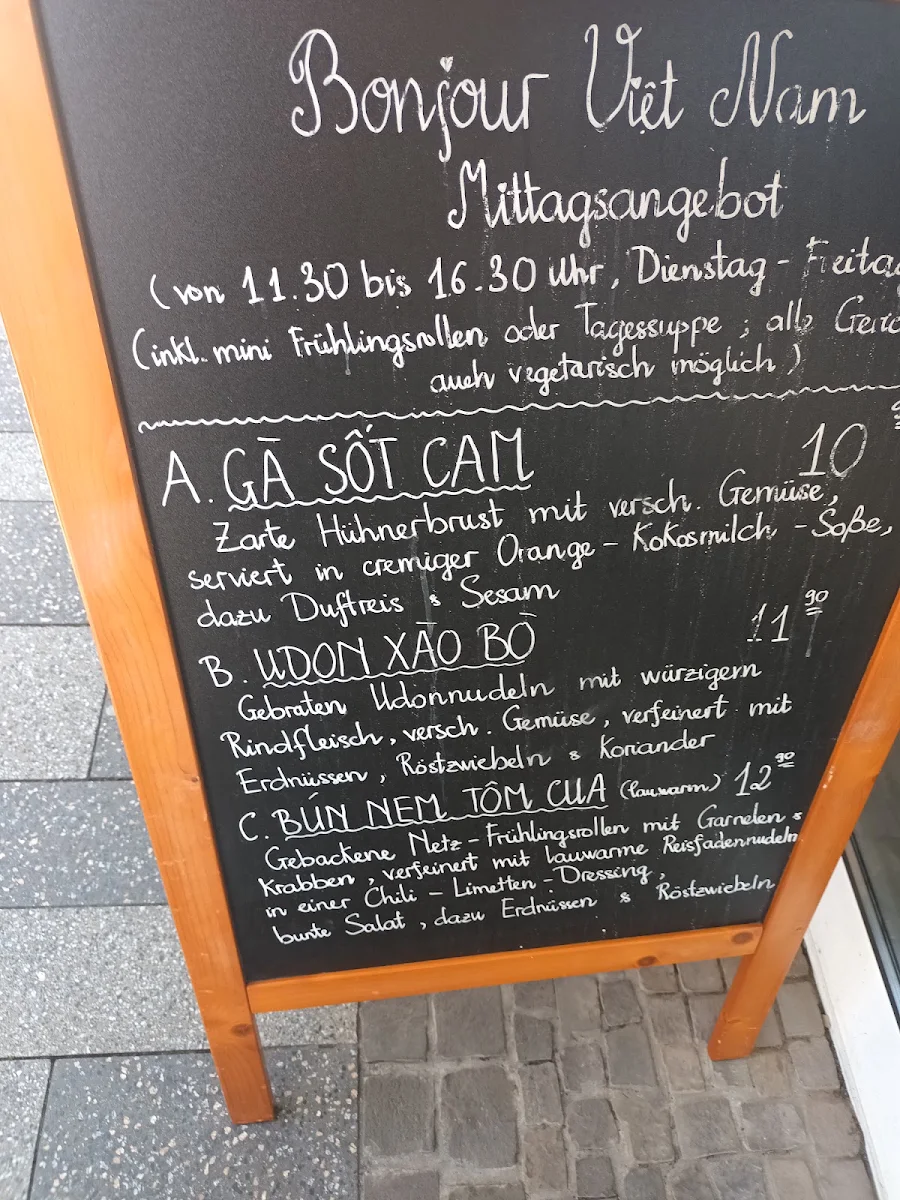 Bonjour Việt Nam
Mittagsangebot
(von 11.30 bis 16.30 Uhr, Dienstag - Freitag
(inkl. mini Frühlingsrollen oder Tagessuppe ; alle
auch vegetarisch möglich)
A. GÀ SỐT CAM 10
Zarte Hühnerbrust mit versch. Gemüse,
serviert in cremiger Orange - Kokosmilch - Soße,
dazu Duftreis & Sesam
B. UDON XÀO BÒ 11 90
Gebraten Udonnudeln mit würzigem
Rindfleisch, versch. Gemüse, verfeinert mit
Erdnüssen, Röstzwiebeln & Koriander
C. BÚN NEM TÔM CUA (lauwarm) 12 90
Gebackene Netz-Frühlingsrollen mit Garnelen &
Krabben, verfeinert mit lauwarme Reisfadennudeln
in einer Chili - Limetten - Dressing,
bunte Salat, dazu Erdnüssen & Röstzwiebeln